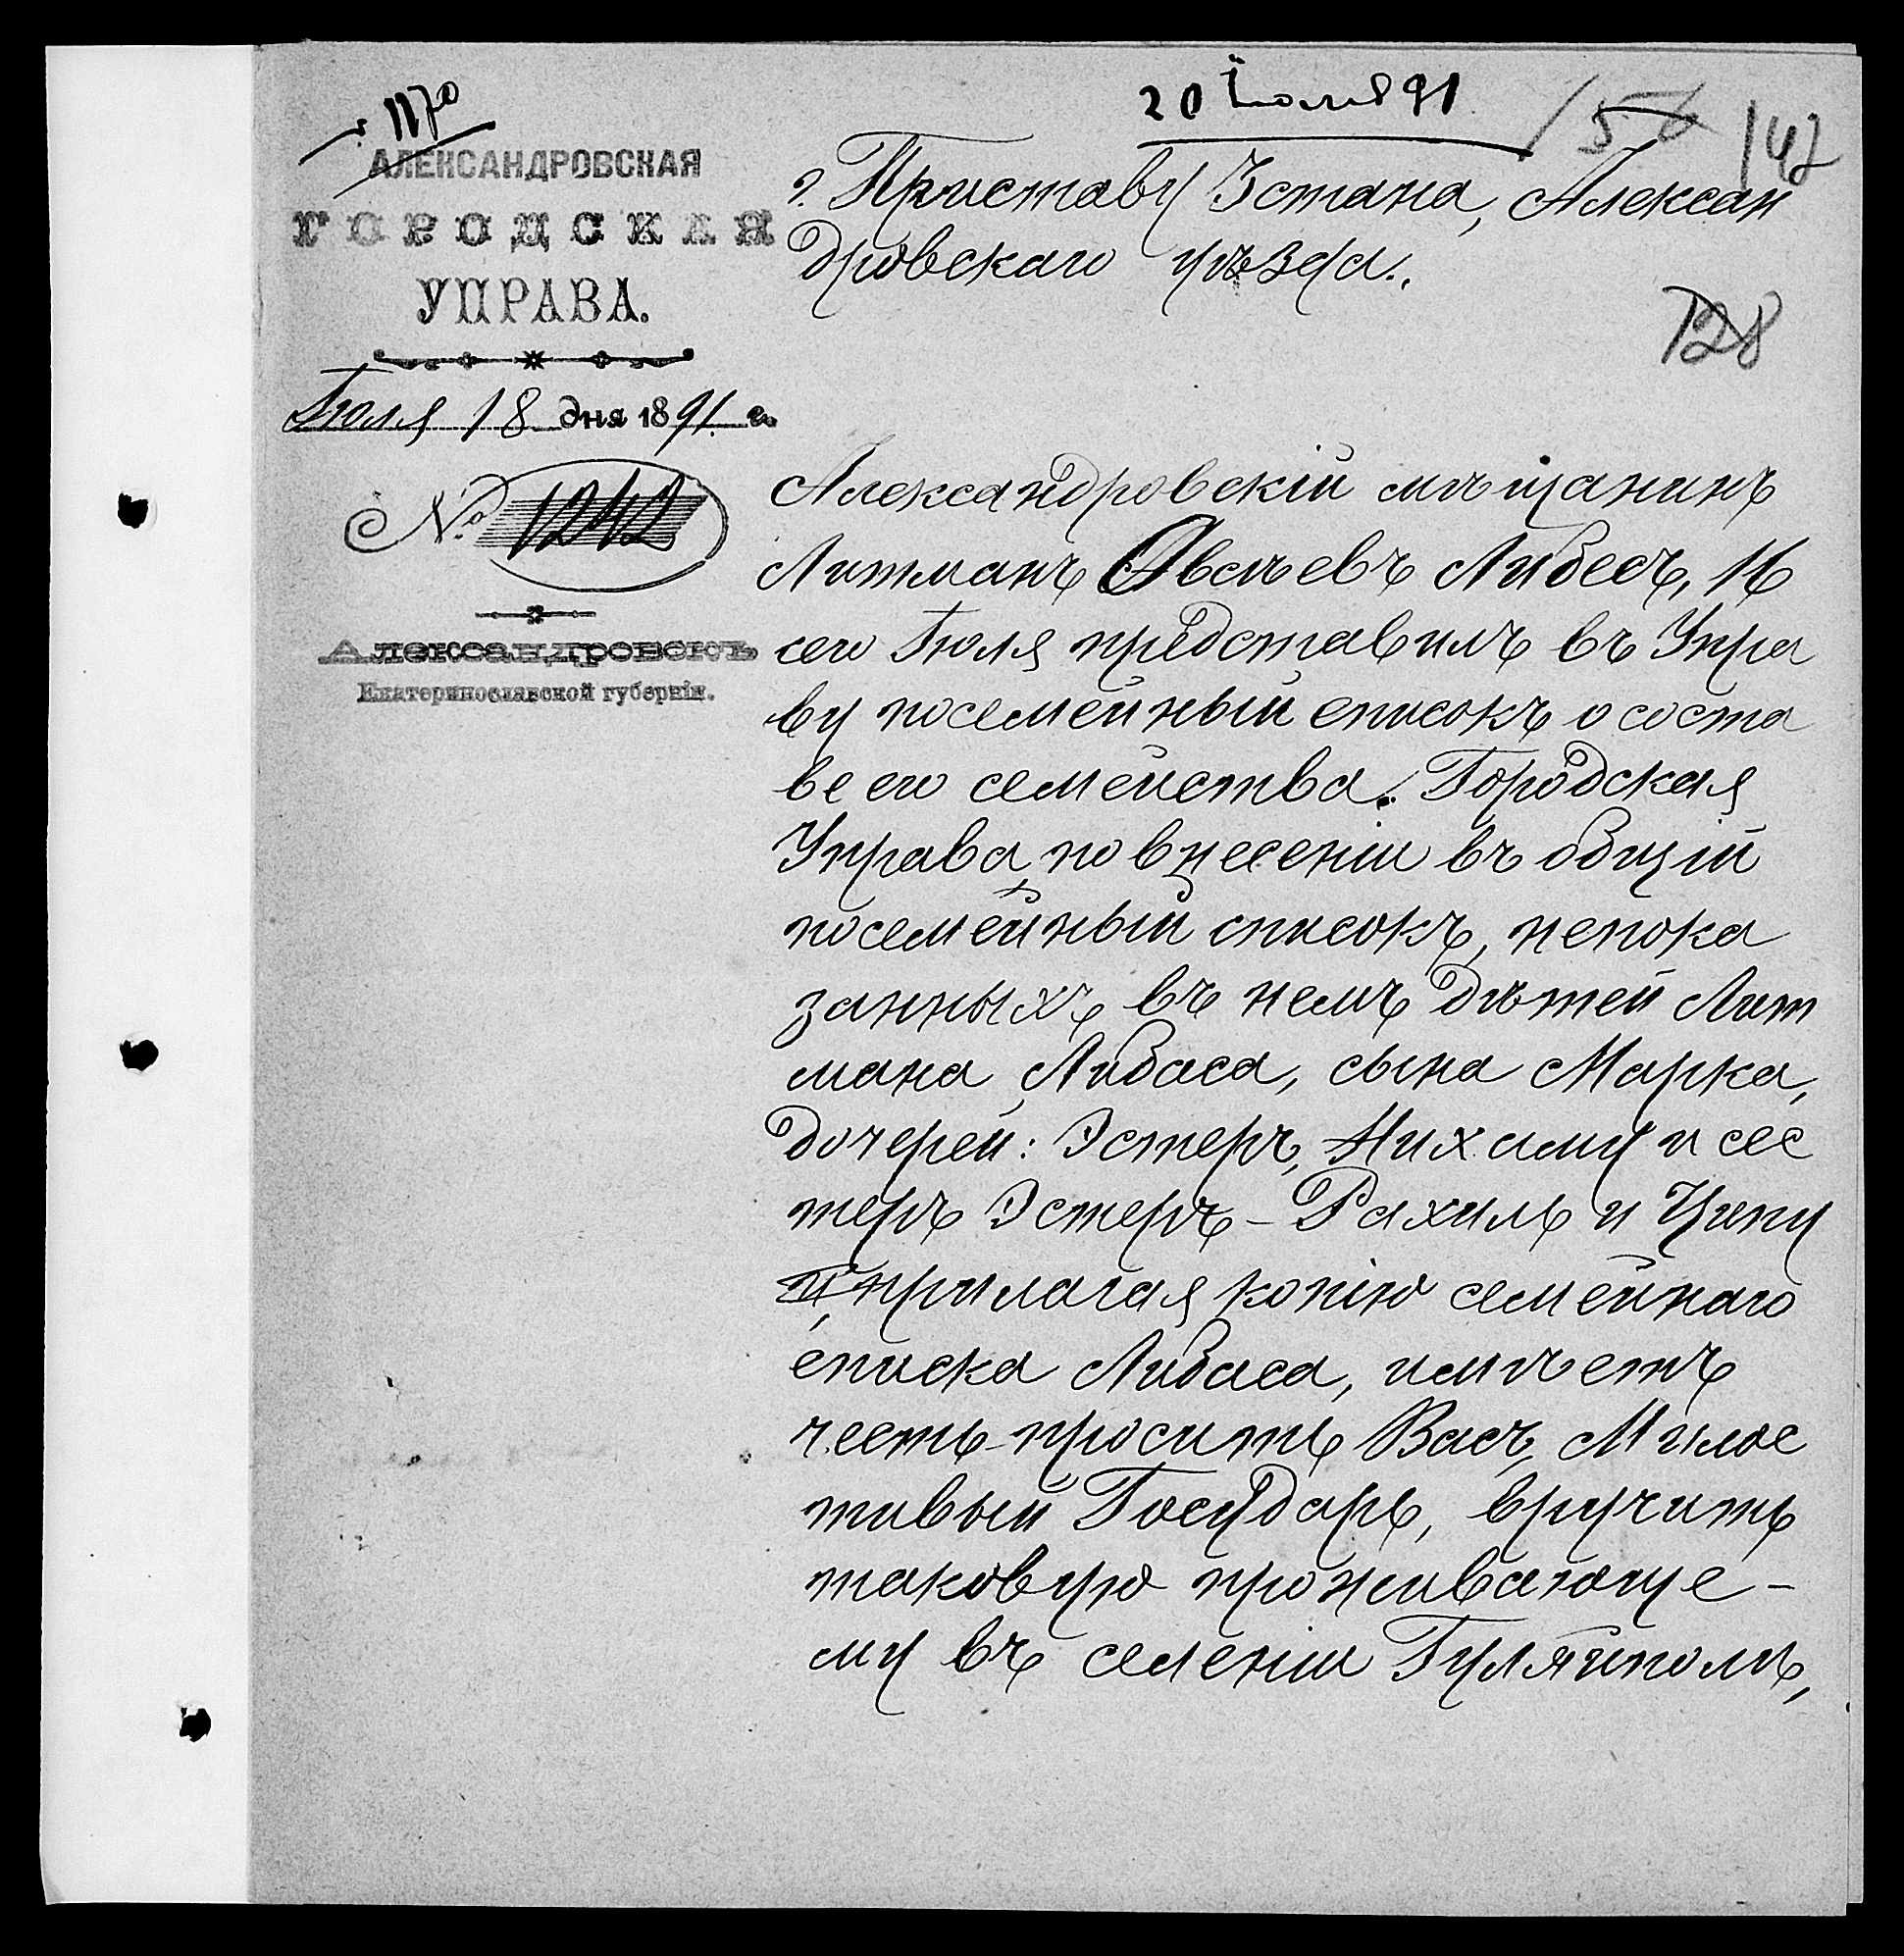 1170
20 Іюля 91
150
142
АЛЕКСАНДРОВСКАЯ
ГОРОДСКАЯ
УПРАВА.
Іюля 18 дня 1891 г.
№ 1242
Александровскъ
Екатеринославской губерніи.
г. Приставу 3 стана, Алексан
дровскаго уѣзда.
128
Александровскій мѣщанинъ
Литманъ Овсѣевъ Либесъ, 16
сего Іюля представилъ въ Упра
ву посемейный списокъ о соста
ве его семейства. Городская
Управа, по внесеніи въ общій
посемейный списокъ, непока
занныхъ въ немъ дѣтей Лит
мана Либаса, сына Марка,
дочерей: Эстеръ, Нихаму и сес
теръ Эстеръ-Рахиль и Ципу
и, прилагая копію семейнаго
списка Либаса, имѣетъ
честь просить Васъ, Милос
тивый Государь, вручить
таковую проживающе-
му въ селеніи Гуляйполѣ,